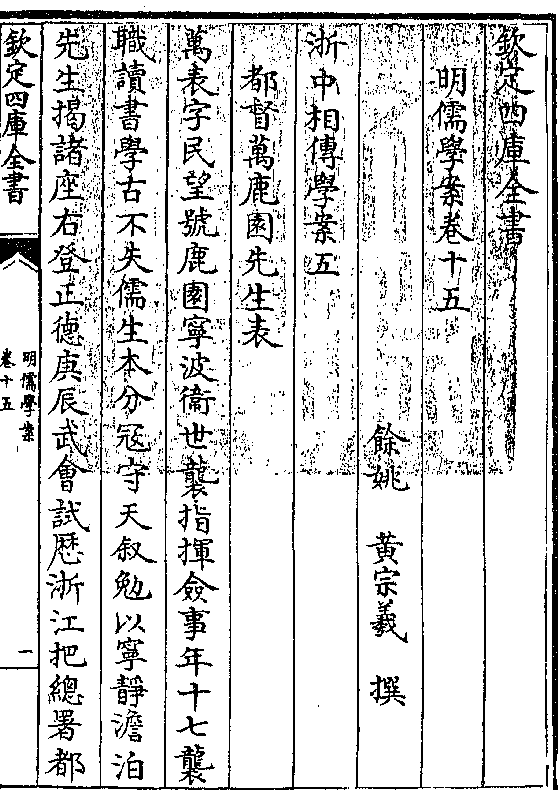 欽定四庫全書
明儒學案卷十五
餘姚 黃宗羲 撰
浙中相傳學案五
都督萬鹿園先生表
萬表字民望號鹿園寧波衛世襲指揮僉事年十七襲
職讀書學古不失儒生本分寇守天叙勉以寧靜澹泊
先生揭諸座右登正德庚辰武會試歴浙江把總署都
欽定四庫全書
明儒學案
卷十五
一